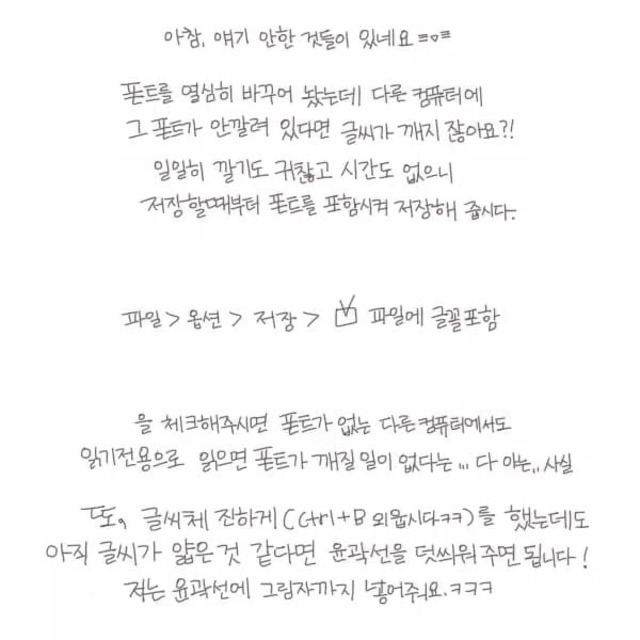 아참, 얘기 안한 것들이 있네요 =ㅇ=
폰트를 열심히 바꾸어 놨는데 다른 컴퓨터에
그 폰트가 안깔려 있다면 글씨가 깨지 잖아요?!
일일히 깔기도 귀찮고 시간도 없으니
저장할때부터 폰트를 포함시켜 저장해 줍시다.
파일 > 옵션 > 저장 > ☑ 파일에 글꼴포함
을 체크해주시면 폰트가 없는 다른컴퓨터에서도
읽기전용으로 읽으면 폰트가 깨질 일이 없다는 ... 다 아는.. 사실
또, 글씨체 진하게 (Ctrl+B 외웁시다ㅋㅋ)를 했는데도
아직 글씨가 얇은것 같다면 윤곽선을 덧씌워주면 됩니다!
저는 윤곽선에 그림자까지 넣어주워요.ㅋㅋㅋ